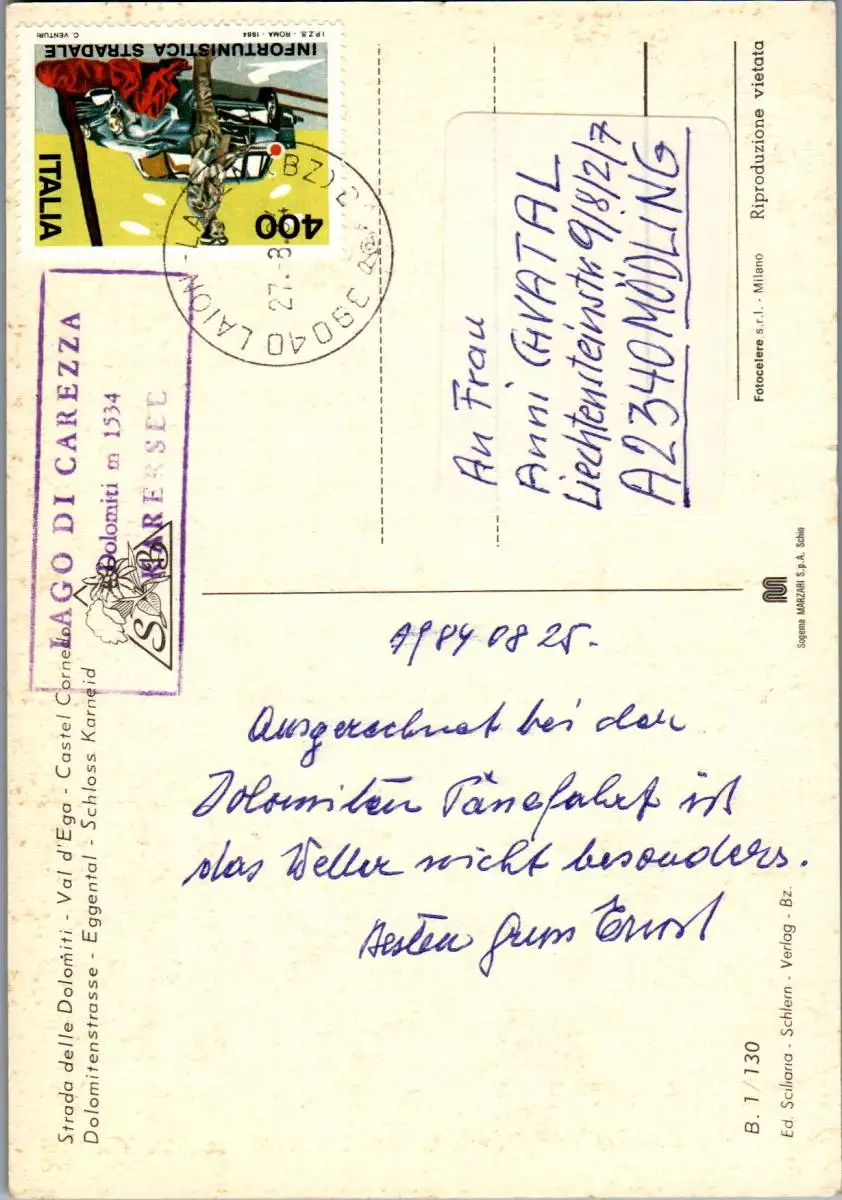 Strada delle Dolomiti - Val d'Ega - Castel Cornedo
Dolomitenstrasse - Eggental - Schloss Karneid
LAGO DI CAREZZA
Dolomiti m 1534
KARERSEE
S B
I.P.Z.S. - ROMA - 1984 C. VENTURI
INFORTUNISTICA STRADALE
ITALIA
400
39040 LAION-LA (BZ)
27.-8.
1984 08 25.
Ausgerechnet bei der
Dolomiten Pässefahrt ist
das Wetter nicht besonders.
Besten Gruss Ernst
An Frau
Anni CHVATAL
Liechtensteinstr. 9/8/2/7
A2340 MÖDLING
B. 1/130
Ed. Sciliaria - Schlern - Verlag - Bz.
Sogema MARZARI S.p.A. Schio
Fotocelere s.r.l. - Milano
Riproduzione vietata